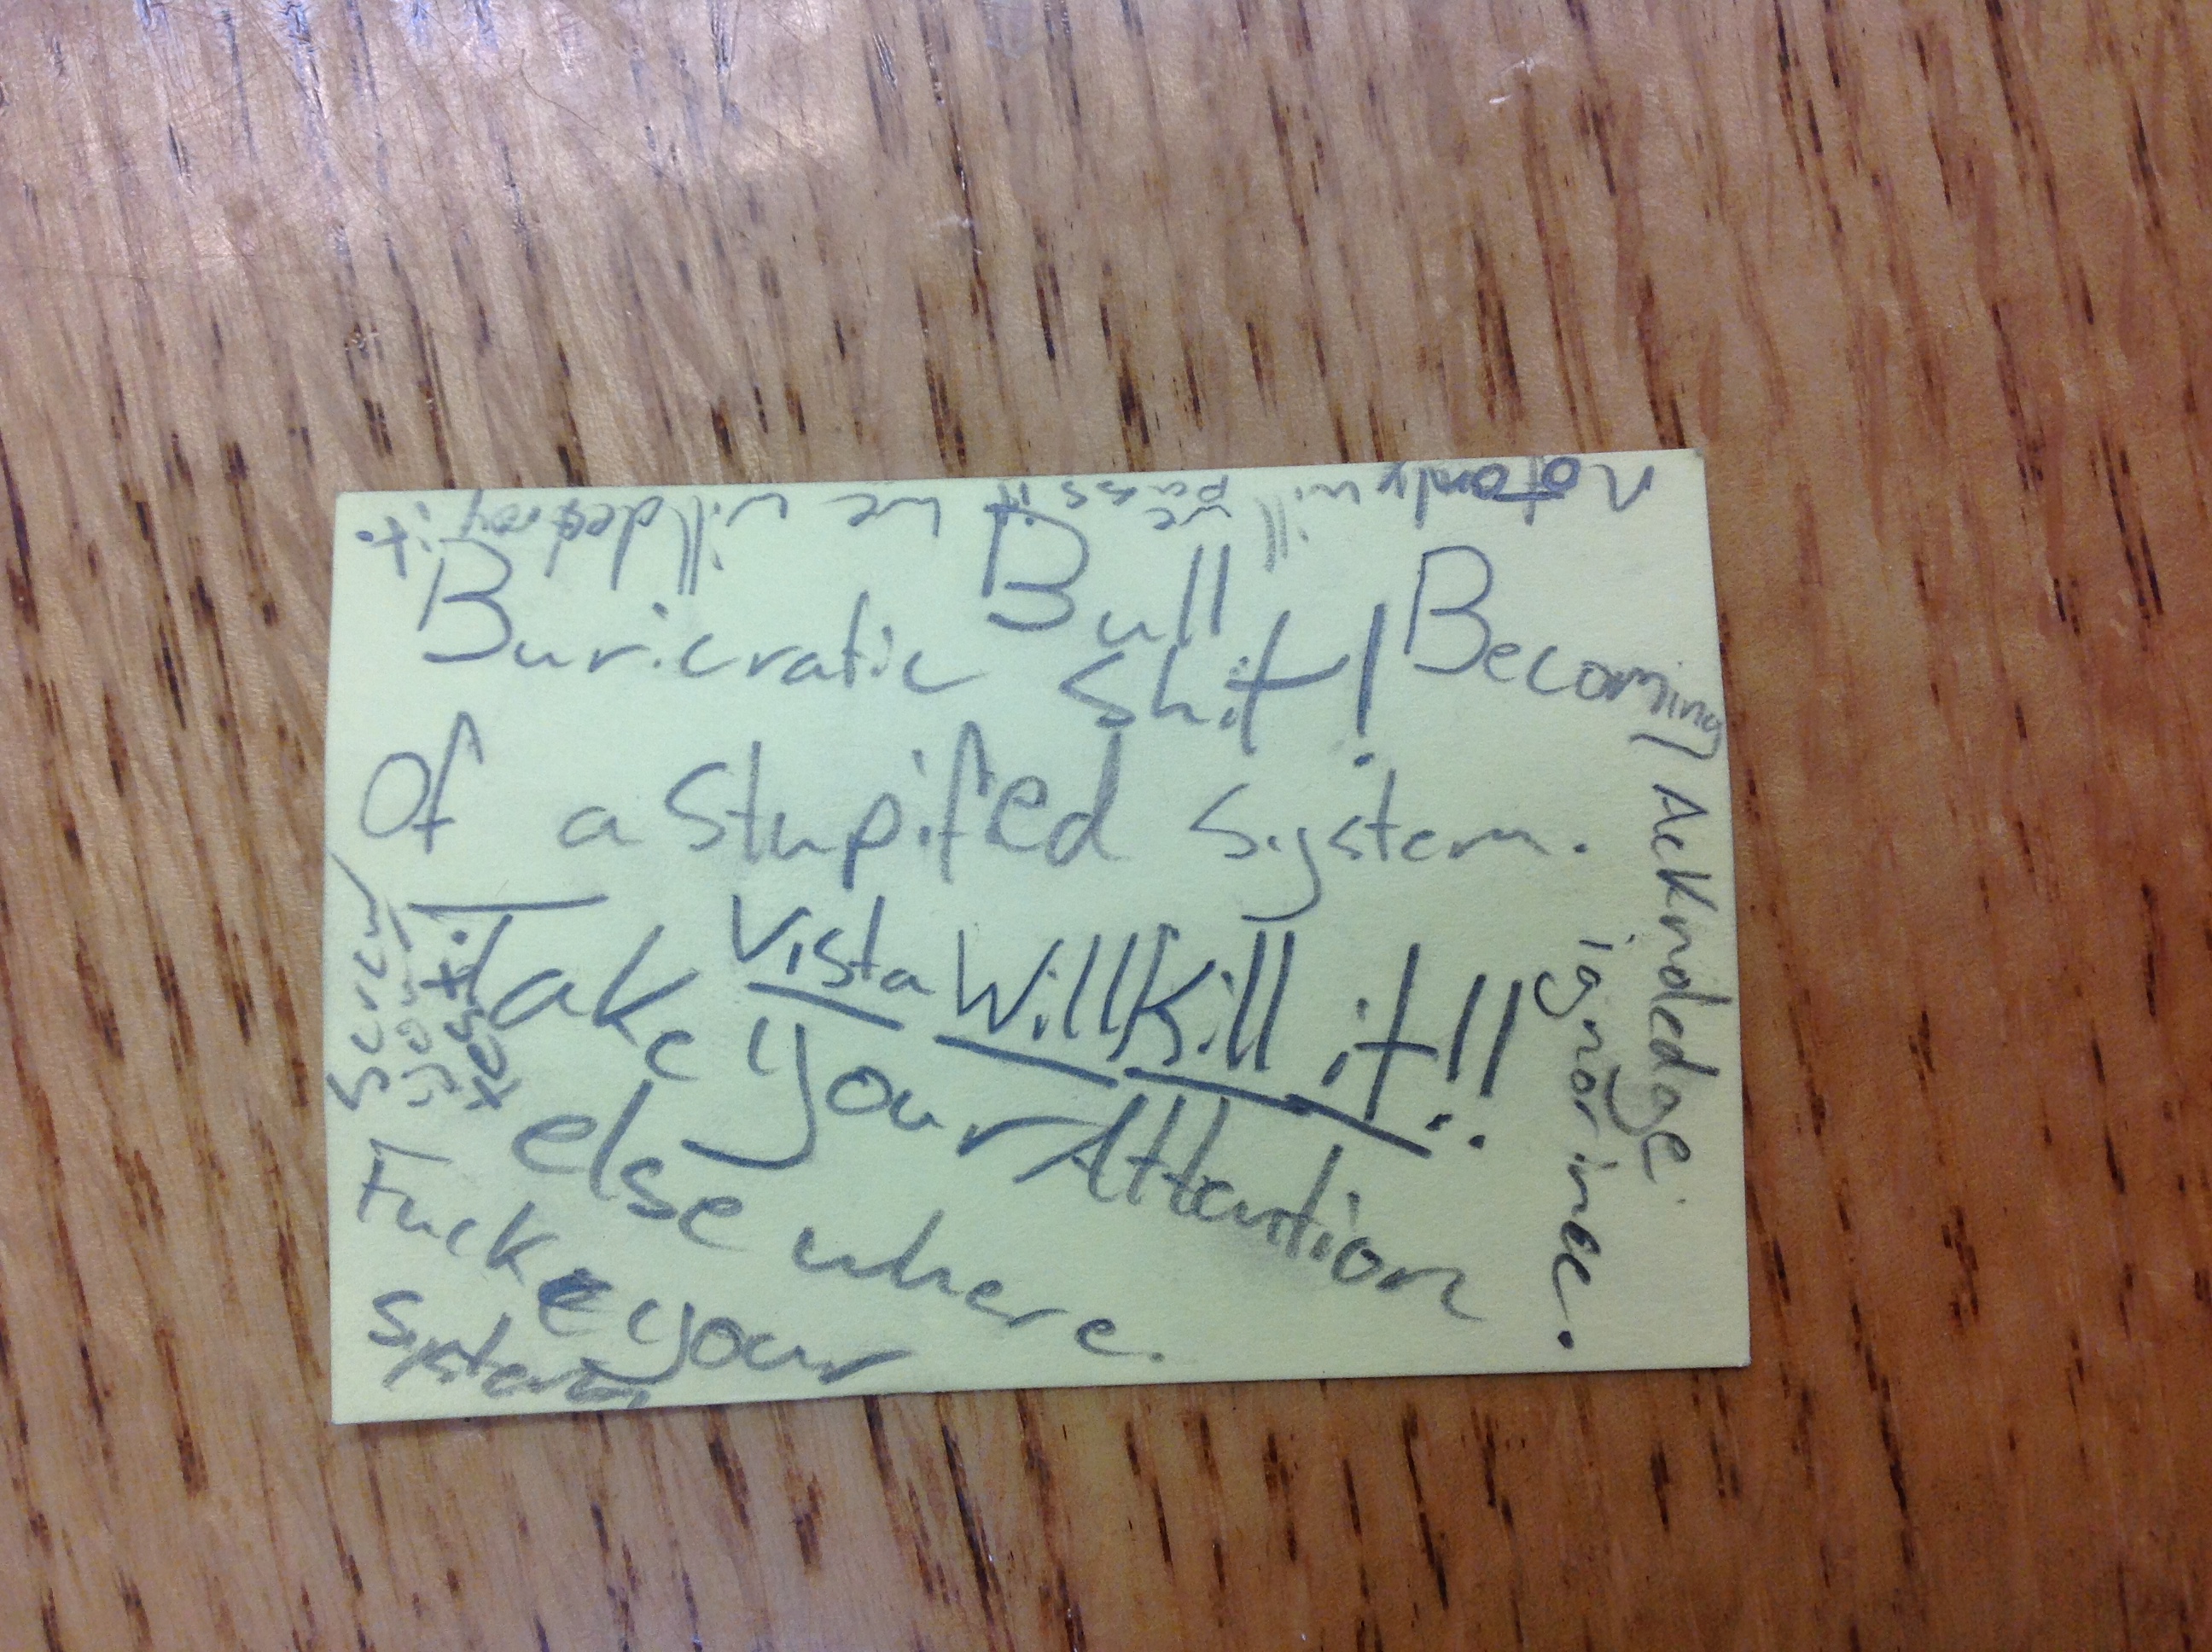 Not only will we pass it we will destroy it.
Buricratic Bull Shit! Becoming
Of a Stupified System.
Vista Will Kill it!!
Take your Attention
else where.
Fuck your
System
Screw your test.
Acknoledge
ignorince.